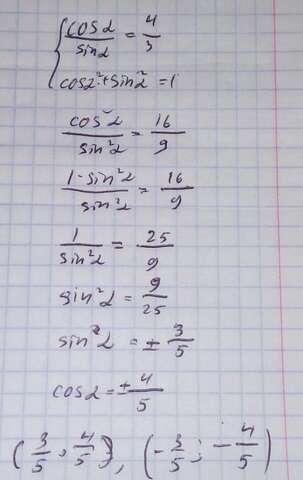 { cosα/sinα = 4/3
cosα² + sin²α = 1
cos²α/sin²α = 16/9
1 - sin²α/sin²α = 16/9
1/sin²α = 25/9
sin²α = 9/25
sin²α = ± 3/5
cosα = ± 4/5
(3/5 ; 4/5), (-3/5 ; -4/5)